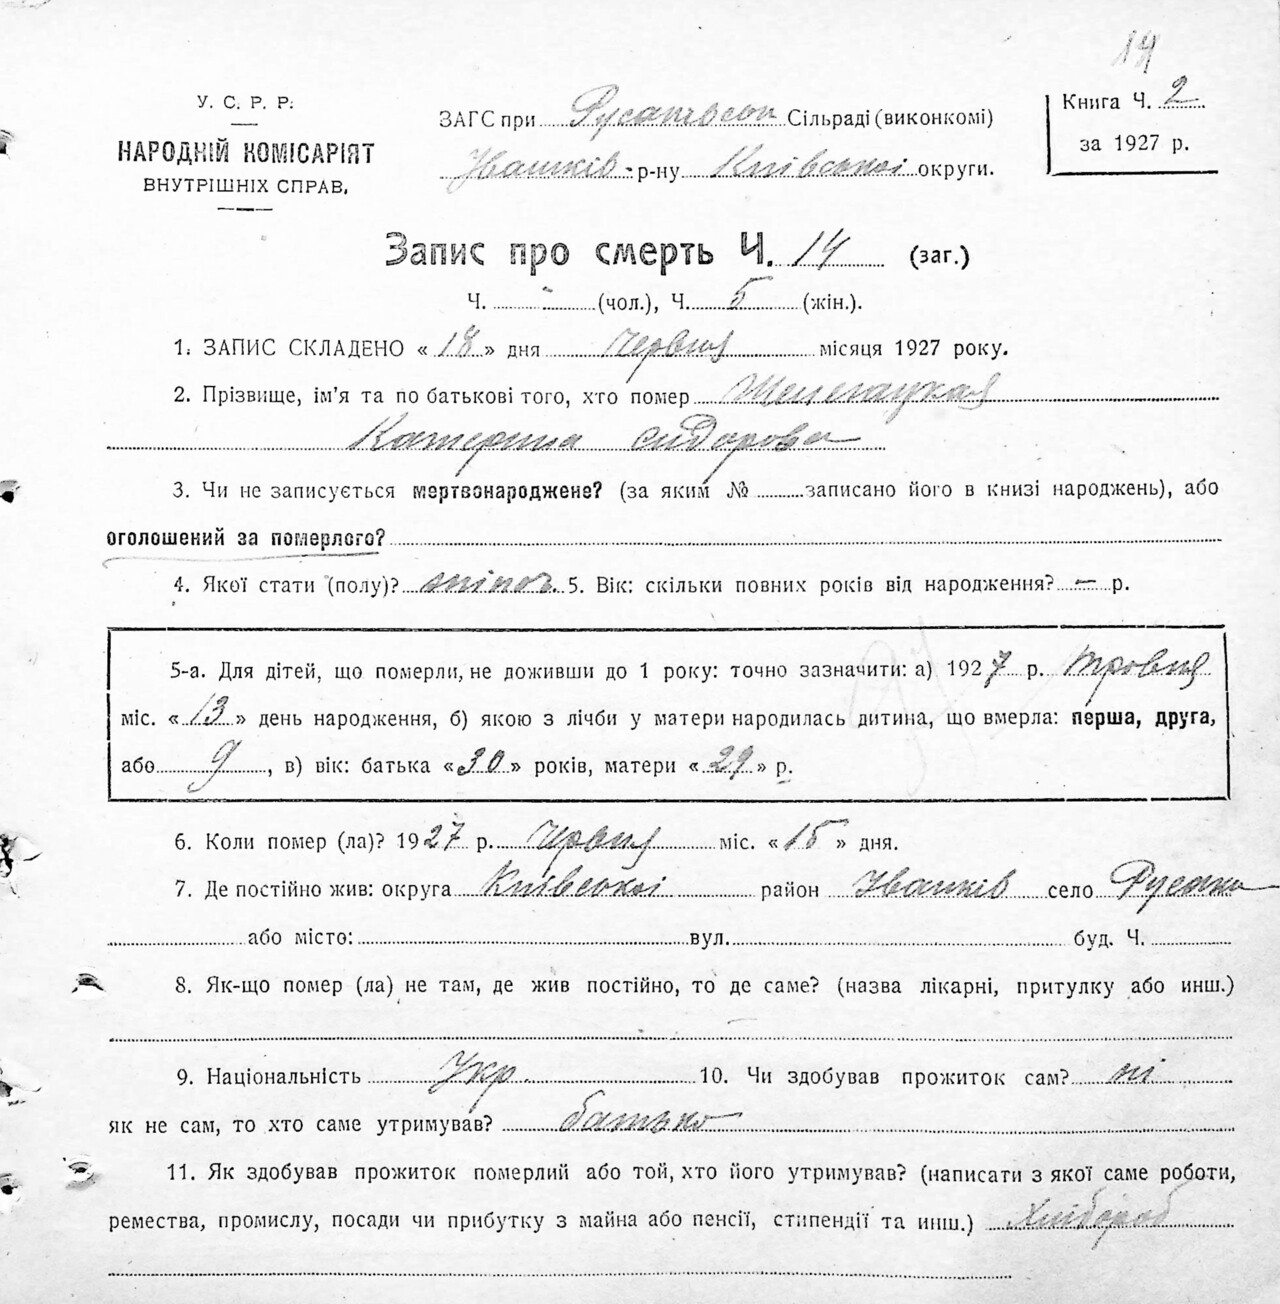 14
У. С. Р. Р.
НАРОДНІЙ КОМІСАРІЯТ
ВНУТРІШНІХ СПРАВ.
ЗАГС при Сільраді (виконкомі)
Іванків р-ну Київської округи.
Книга Ч. 2
за 1927 р.
Запис про смерть Ч. 14 (заг.)
Ч. - (чол.), Ч. 5 (жін.).
1. ЗАПИС СКЛАДЕНО « 18 » дня Червня місяця 1927 року.
2. Прізвище, ім'я та по батькові того, хто помер
Катерина Сидорова
3. Чи не записується мертвонароджене? (за яким № записано його в книзі народжень), або
оголошений за померлого?
4. Якої стати (полу)? жіноч. 5. Вік: скільки повних років від народження? — р.
5-а. Для дітей, що померли, не доживши до 1 року: точно зазначити: а) 1927 р. Тровня
міс. « 13 » день народження, б) якою з лічби у матери народилась дитина, що вмерла: перша, друга,
або 9, в) вік: батька « 30 » років, матери « 29 » р.
6. Коли помер (ла)? 1927 р. Червня міс. « 15 » дня.
7. Де постійно жив: округа Київської район Іванків село Русаки
або місто: вул. буд. Ч.
8. Як-що помер (ла) не там, де жив постійно, то де саме? (назва лікарні, притулку або инш.)
9. Національність Укр 10. Чи здобував прожиток сам? ні
як не сам, то хто саме утримував? батько
11. Як здобував прожиток померлий або той, хто його утримував? (написати з якої саме роботи,
ремества, промислу, посади чи прибутку з майна або пенсії, стипендії та инш.) Хлібороб